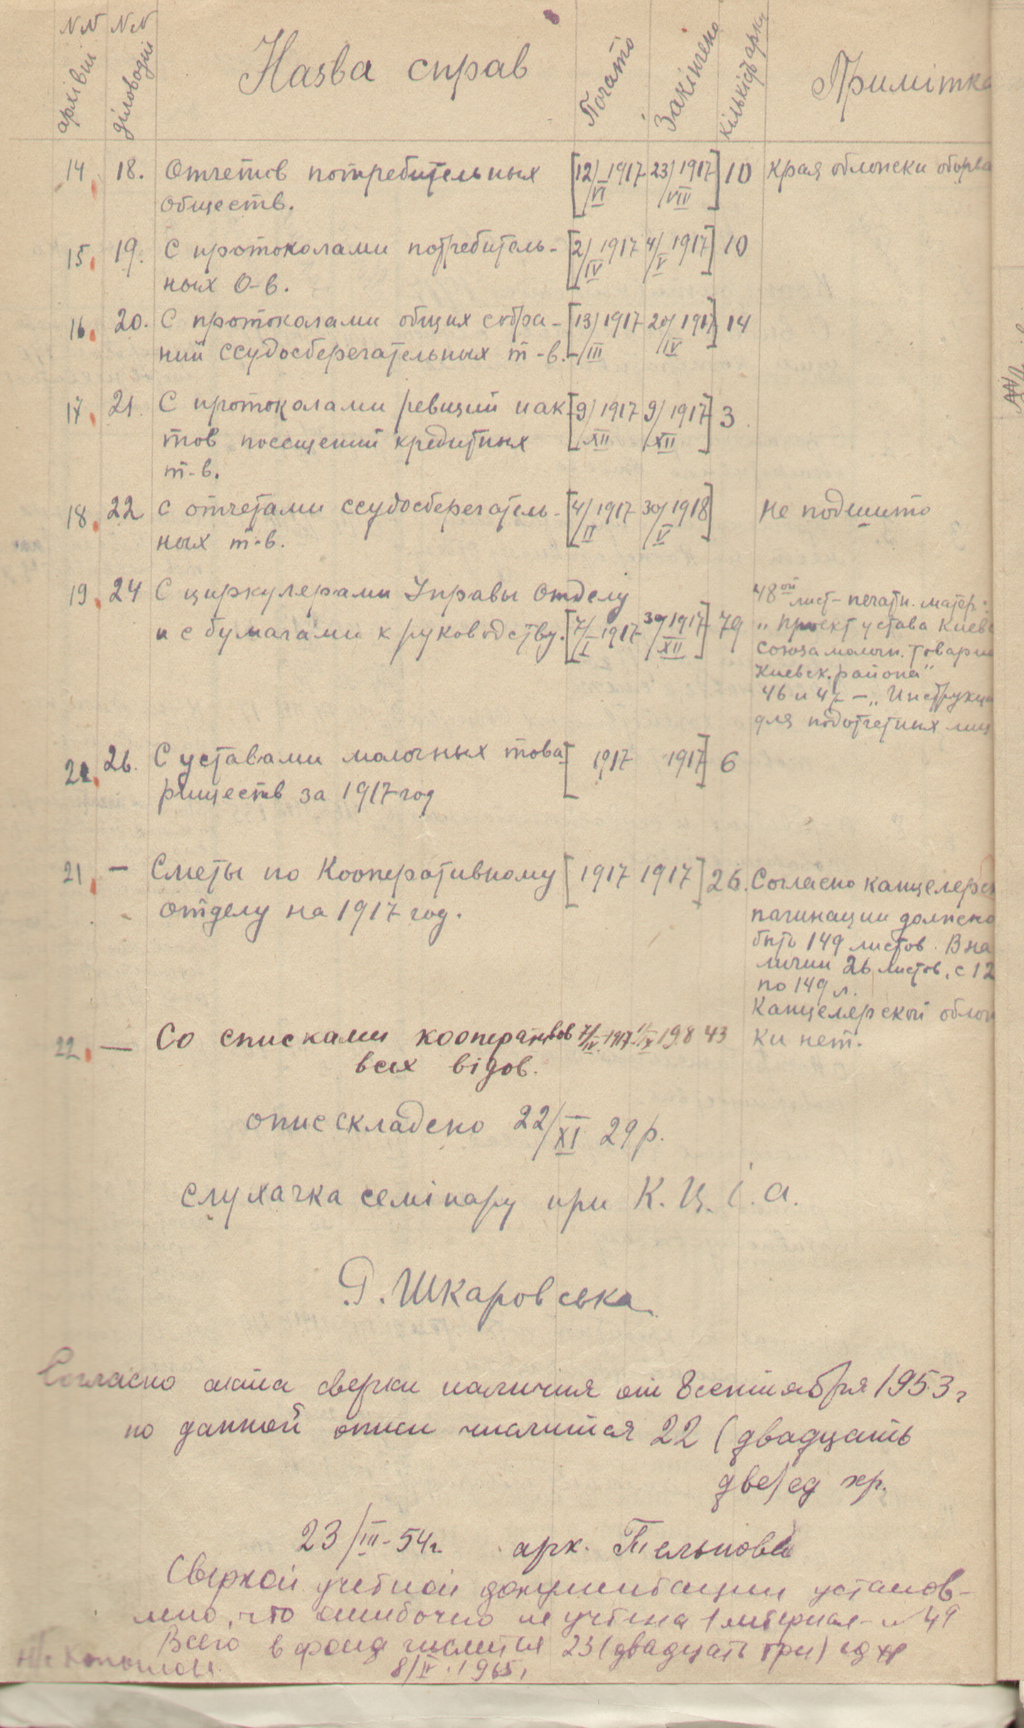 NN архівні NN діловодні Назва справ Почато Закінчено кількість арку Примітка
14. 18. Отчетов потребительных [12/VI 1917 23/VIII 1917] 10 Края обложки оборва
обществ.
15. 19. С протоколами потребитель- [2/IV 1917 4/V 1917] 10
ных О-в.
16. 20. С протоколами общих собра- [13/III 1917 20/IV 1917] 14
ний ссудосберегательных т-в.
17. 21. С протоколами ревизий и ак- [9/XII 1917 9/XII 1917] 3
тов посещений кредитных
т-в.
18. 22 С отчетами ссудосберегатель- [4/II 1917 30/V 1918] Не подшито
ных т-в.
19. 24 С циркулерами Управы Отделу
и с бумагами к руководству. [7/I 1917 30/XII 1917] 79
48ой лист – печатн. матер:
„Проект устава Киевс
Союза молочн. товарищ
Киевск. района"
46 и 47 – „Инструкц
для подотчетных лиц
20. 26. С уставами молочных това [ 1917 1917] 6
риществ за 1917 год
21. – Сметы по Кооперативному [1917 1917] 26.
отделу на 1917 год.
Согласно канцелерск
пагинации должно
быть 149 листов. В на
личии 26 листов, с 12
по 149 л.
Канцелерской облож
ки нет.
22. – Со списками кооперативов 7/IV 1917 43
всех відов.
опис складено 22/XI 29 р.
слухачка семінару при К. Ц. І. А.
Шкаровська
Согласно акта сверки наличия от 8 сентября 1953 г
по данной описи числится 22 (двадцать
две) ед хр.
23/III-54 г. арх. Тельнова
Сверкой учетной документации установ-
лено, что ошибочно не учтена 1 материал № 49
Всего в фонде числится 23 (двадцать три) ед хр
8/IV 1965,